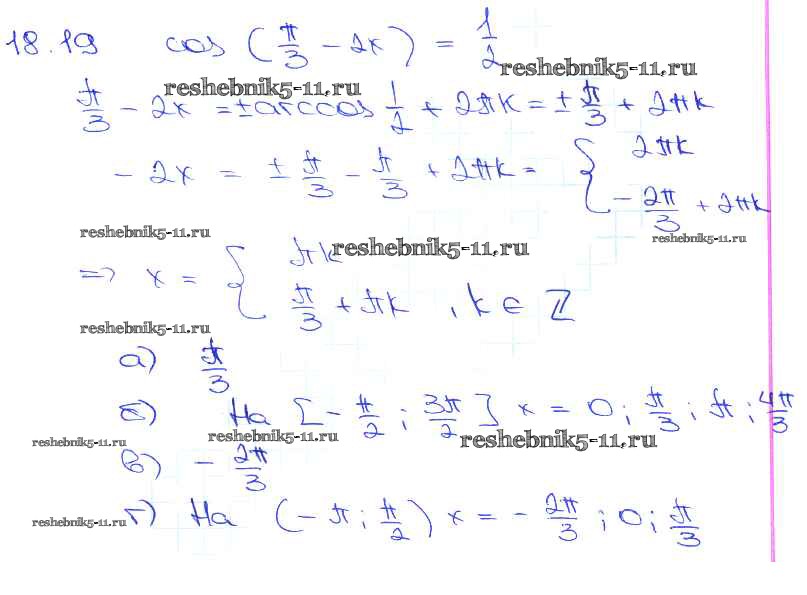 18.19 cos (π/3 - 2x) = 1/2
reshebnik5-11.ru
reshebnik5-11.ru
π/3 - 2x = ± arccos 1/2 + 2πk = ± π/3 + 2πk
- 2x = ± π/3 - π/3 + 2πk = { 2πk
- 2π/3 + 2πk
reshebnik5-11.ru
reshebnik5-11.ru
reshebnik5-11.ru
=> x = { πk
π/3 + πk , k ∈ Z
reshebnik5-11.ru
а) π/3
б) На [- π/2 ; 3π/2] x = 0 ; π/3 ; π ; 4π/3
reshebnik5-11.ru
reshebnik5-11.ru
reshebnik5-11.ru
в) - 2π/3
г) На (- π ; π/2) x = - 2π/3 ; 0 ; π/3
reshebnik5-11.ru